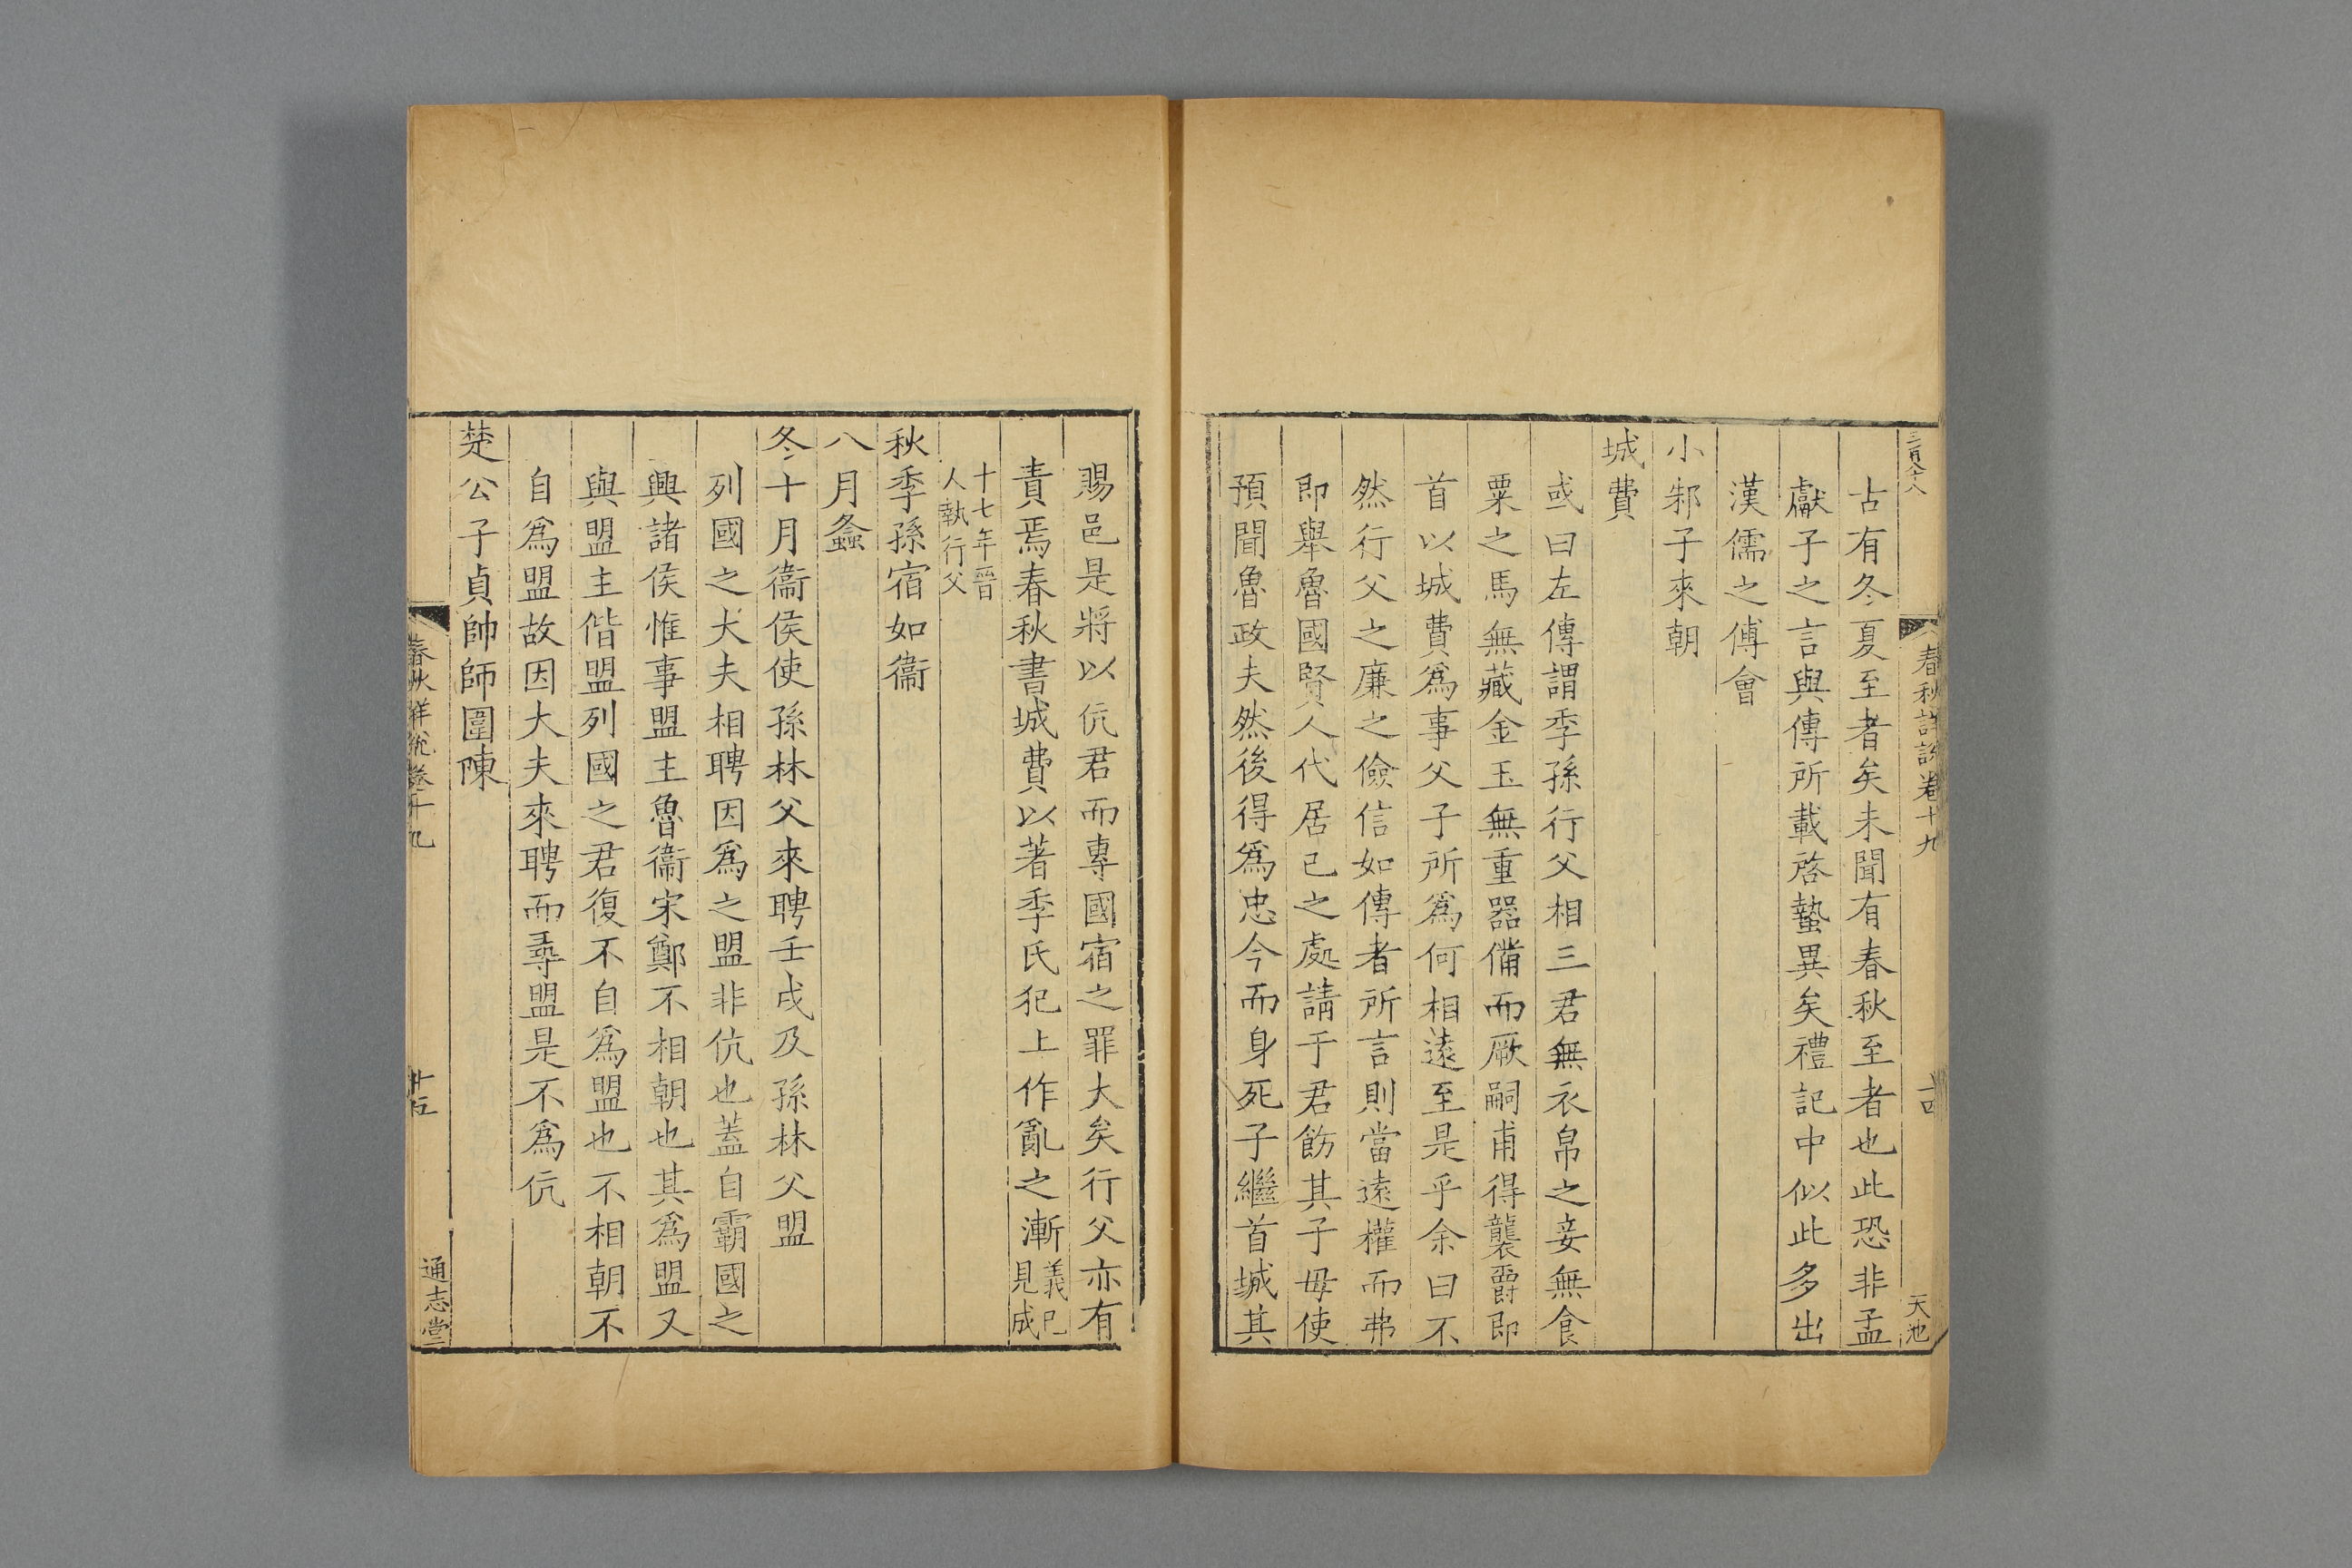 三百八十八
春秋詳說卷十九
十四
天池
古有冬夏至者矣未聞有春秋至者也此恐非孟
獻子之言與傳所載啓蟄異矣禮記中似此多出
漢儒之傅會
小邾子來朝
城費
或曰左傳謂季孫行父相三君無衣帛之妾無食
粟之馬無藏金玉無重器備而厥嗣甫得襲爵即
首以城費爲事父子所爲何相遠至是乎余曰不
然行父之廉之儉信如傳者所言則當遠權而弗
即舉魯國賢人代居己之處請于君飭其子毋使
預聞魯政夫然後得爲忠今而身死子繼首城其
賜邑是將以伉君而專國宿之罪大矣行父亦有
責焉春秋書城費以著季氏犯上作亂之漸義已見成
十七年晉人執行父
秋季孫宿如衞
八月螽
冬十月衞侯使孫林父來聘壬戌及孫林父盟
列國之大夫相聘因爲之盟非伉也蓋自霸國之
興諸侯惟事盟主魯衞宋鄭不相朝也其爲盟又
與盟主偕盟列國之君復不自爲盟也不相朝不
自爲盟故因大夫來聘而尋盟是不爲伉
楚公子貞帥師圍陳
春秋詳說卷十九
十五
通志堂